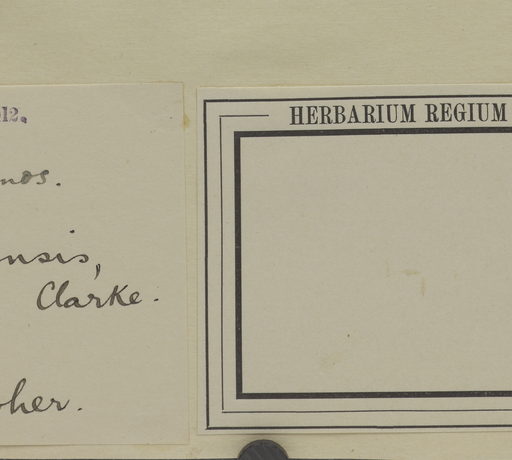 12.
nos.
nsis,
Clarke.
oher.
HERBARIUM REGIUM